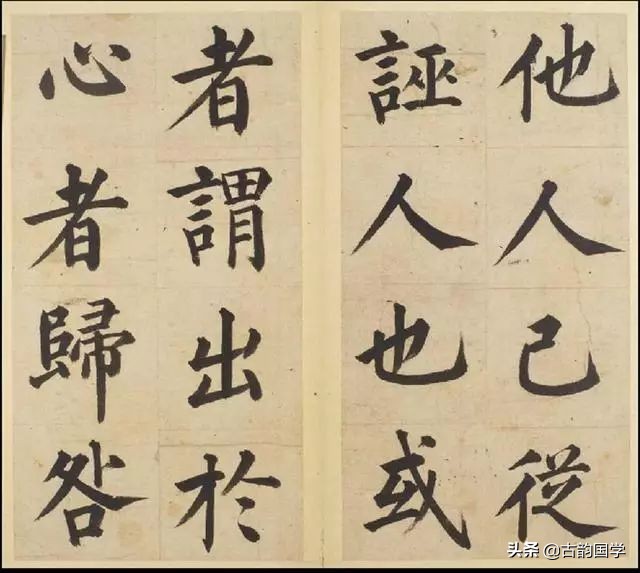 他人己從
誣人也或
者謂出於
心者歸咎
头条 @古韵国学